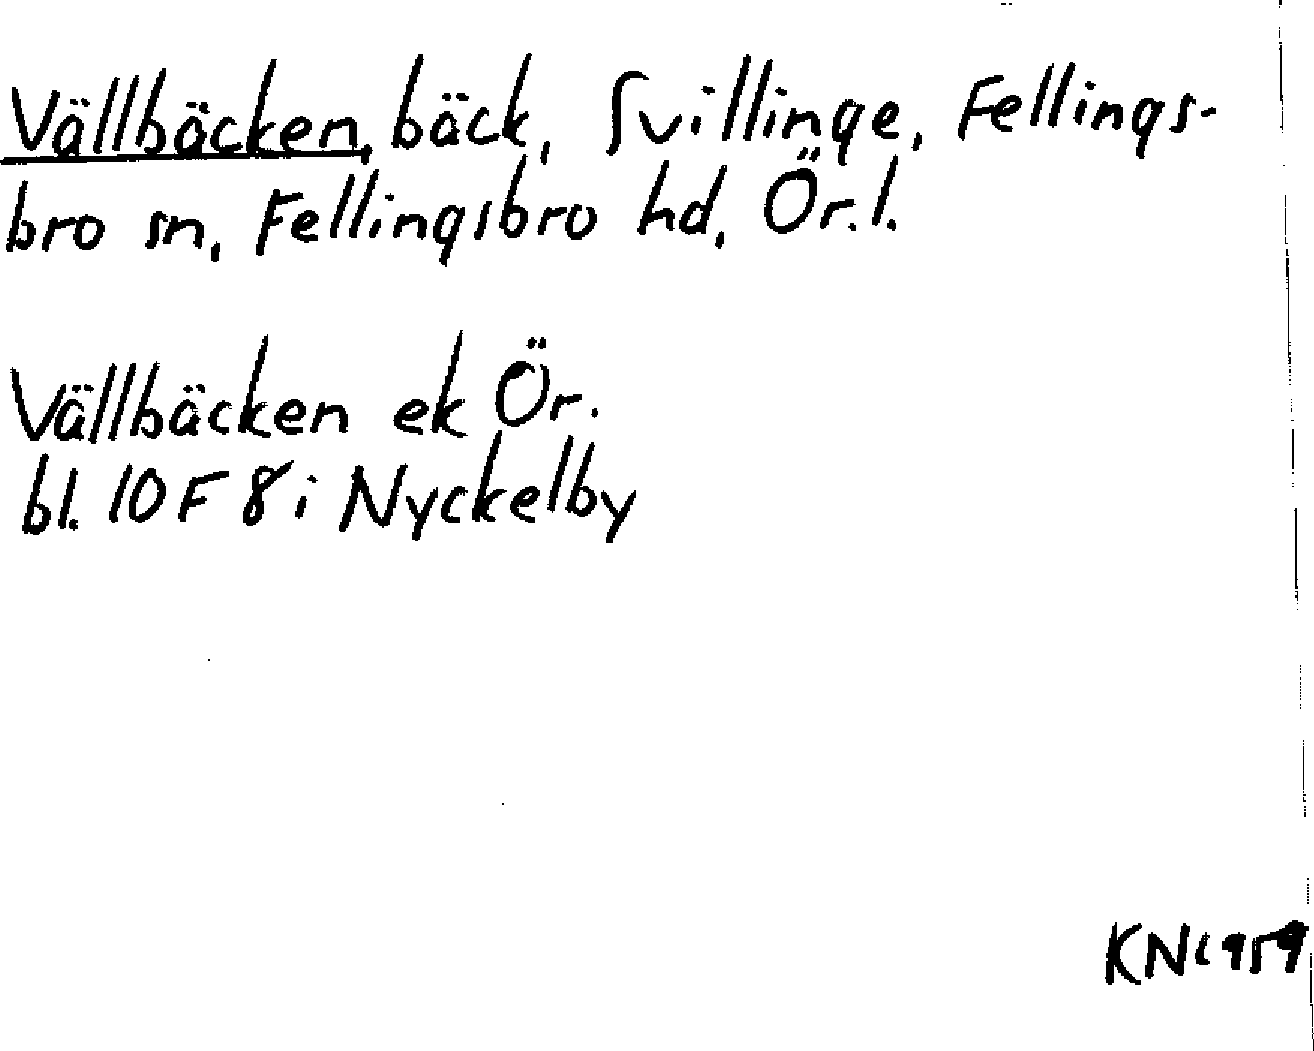 Vällbäcken, bäck, Svillinge, Fellings-
bro sn, Fellingsbro hd, Ör.l.
Vällbäcken ek Ör.
bl. 10 F 8 i Nyckelby
KN 1959